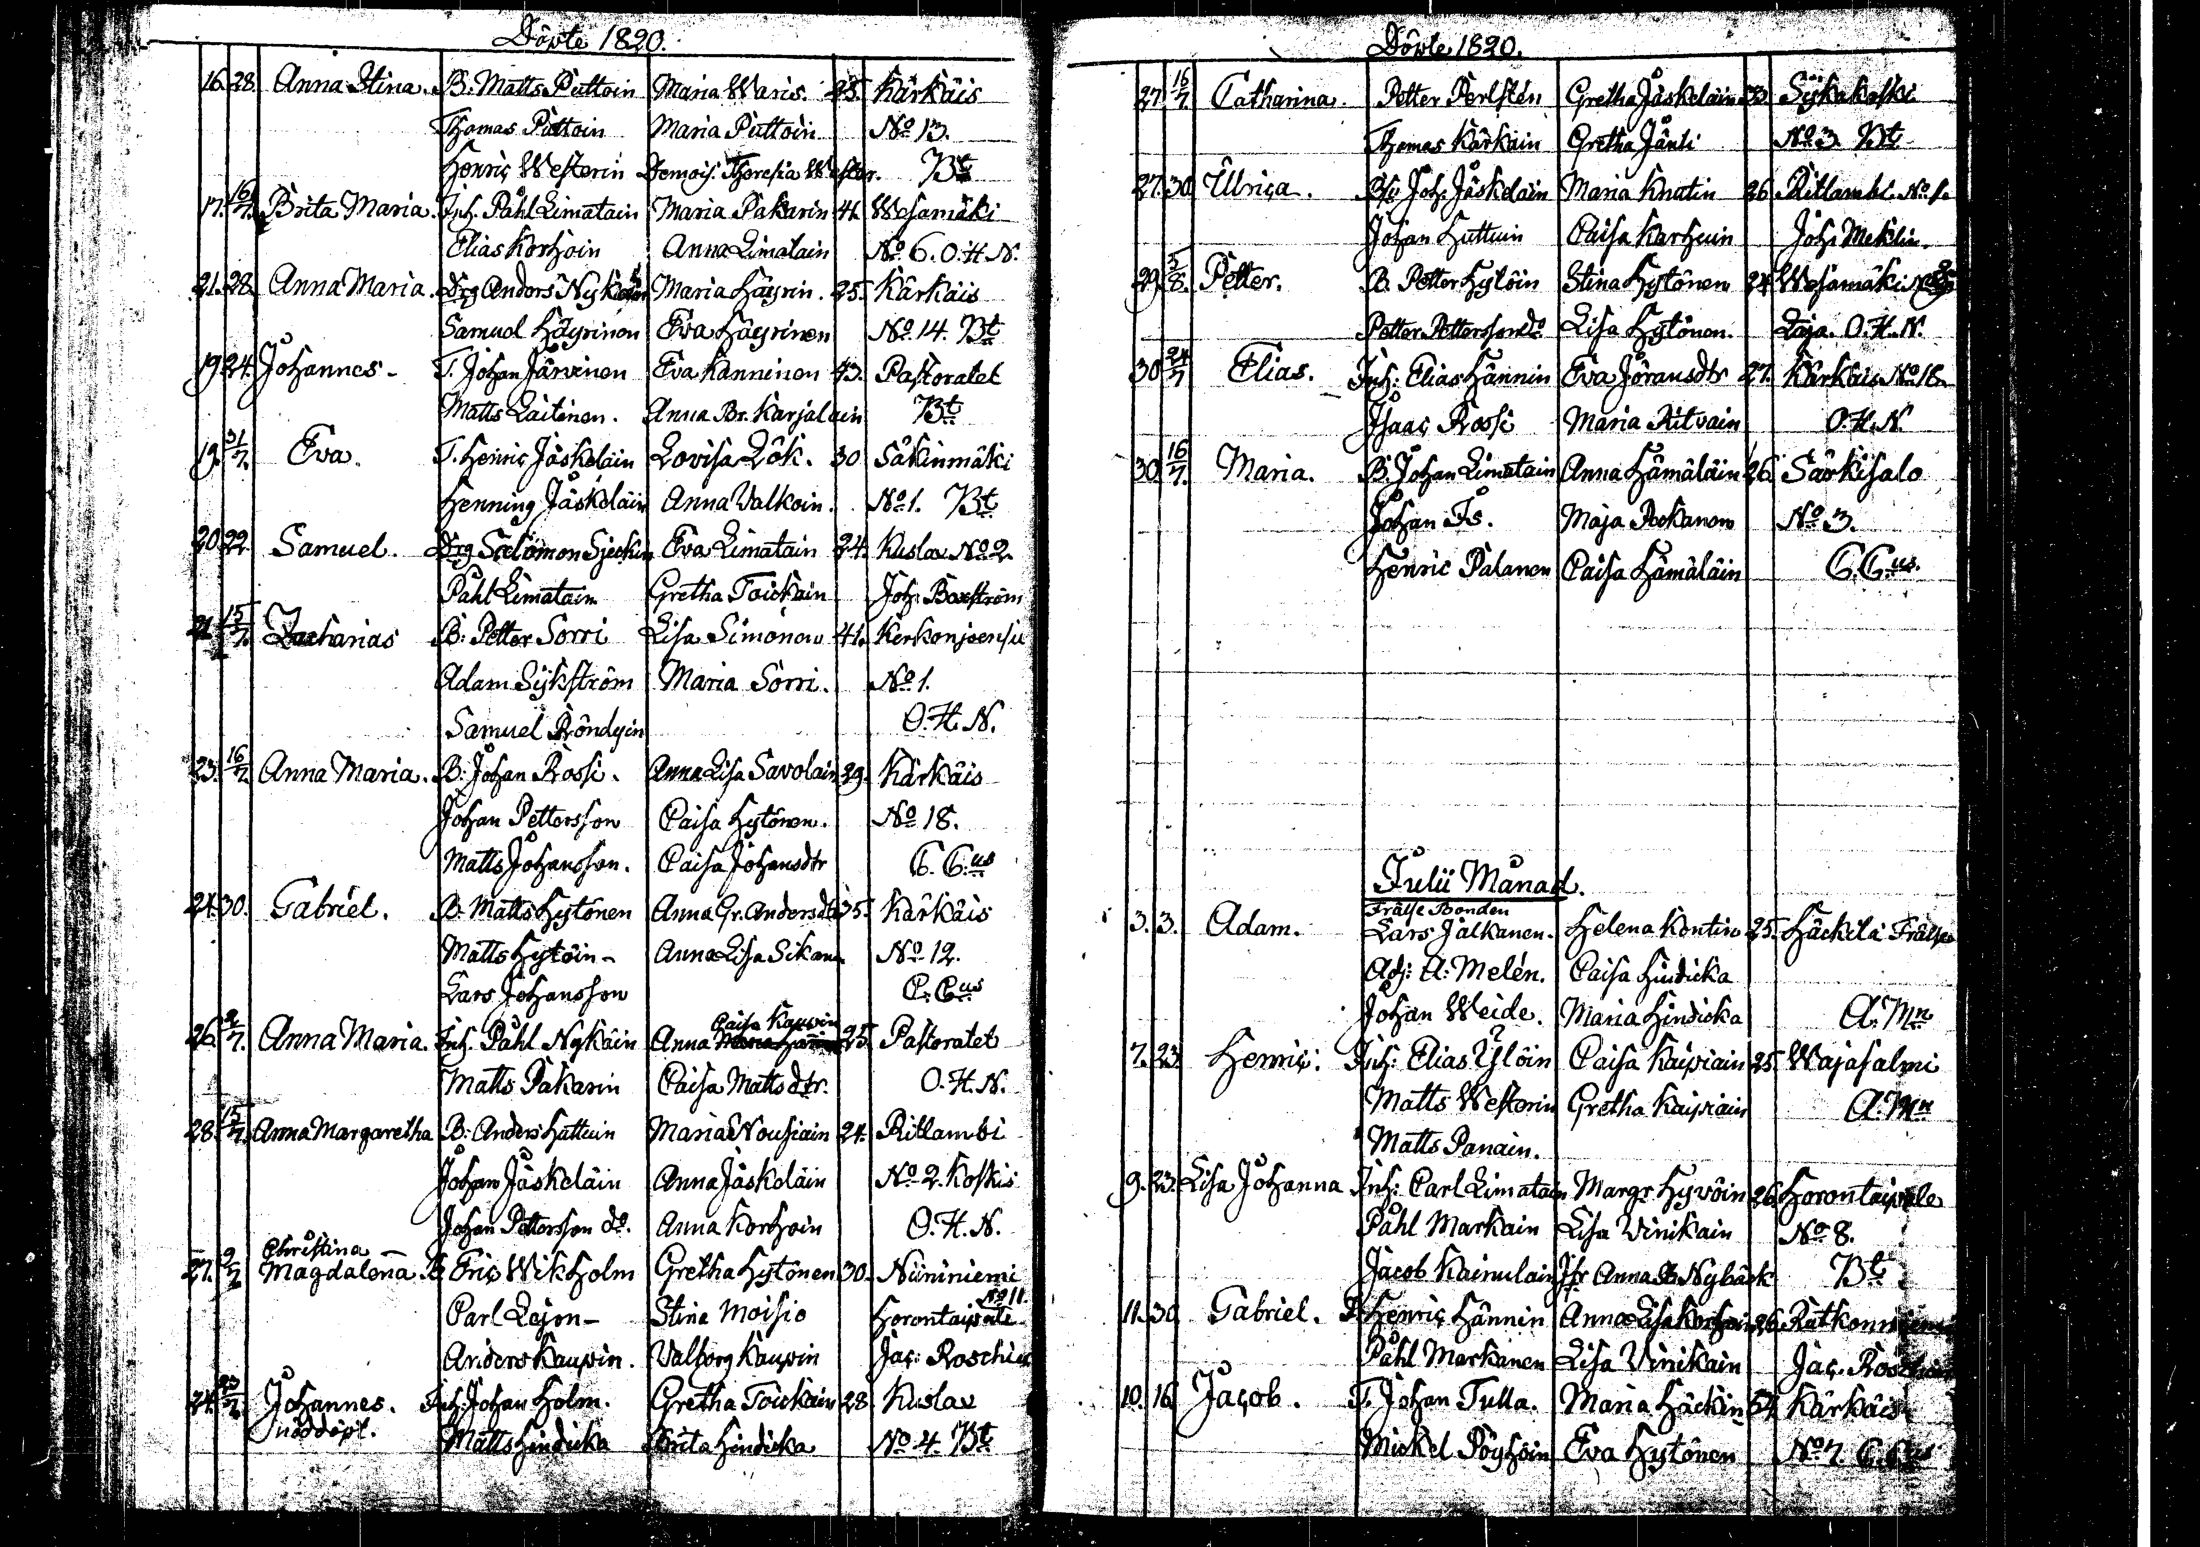 Döpte 1820.
16. 28. Anna Stina. B: Matts Puttoin Maria Waris. 25. Kärkäis
Thomas Puttoin Maria Puttoin No 13.
Henric Westerin Demois. Theresia Wester. Bt
17. 16/7. Brita Maria. Inh. Påhl Limatain Maria Pakarin 41. Wesamäki
Elias Korhoin Anna Limatain No 6. O.H.N.
21. 28. Anna Maria. Drg Anders Nykäin Maria Häyrin. 25. Kärkäis
Samuel Häyrinen Eva Häyrinen No 14. Bt
19 24. Johannes- T. Johan Järvinen Eva Kanninen 43. Pastoratet
Matts Laitinen. Anna Br. Karjalain Bt
19. 31/7. Eva. T. Henric Jäskeläin Lovisa Lök. 30 Säkinmäki
Henning Jäskeläin Anna Valkoin. No 1. Bt
20. 22. Samuel. Drg Salomon Eva Limatain 24. Kuslax No 2.
Påhl Limatain Gretha Toickain Joh: Boxström
21. 15/7. Zacharias B: Petter Sorri Lisa Simonen 41. Kerkonjoensu
Adam Sykström Maria Sorri. No 1.
Samuel Röndyin O.H.N.
23. 16/7. Anna Maria. B: Johan Rossi. Anna Lisa Savolain 29. Kärkäis
Johan Pettersson Caisa Hytönen. No 18.
Matts Johansson. Caisa Johansdtr C. C:us
24. 30. Gabriel. B: Matts Hytönen Anna Gr. Andersdtr 35. Kärkäis
Matts Hytöin- Anna Lisa Sikanen No 12.
Lars Johansson C. C:us
Caisa Kauvin
26. 2/7. Anna Maria. Inh. Påhl Nykäin Anna 25. Pastoratet
Matts Pakarin Caisa Mattsdtr. O.H.N.
28. 15/7. Anna Margaretha B: Anders Huttuin Maria Nousiain 24. Ritlambi
Johan Jäskeläin Anna Jäskeläin No 2. Koskis
Johan Pettersson do. Anna Korhoin O.H.N.
Christina
27. 9/7 Magdalena- B Eric Wikholm Gretha Hytönen 30. Niininiemi
No 11.
Carl Lajon- Stina Moisio Horontaipale
Anders Kauvin. Valborg Kauvin Jac: Roschier
24. 23/7. Johannes. Inh: Johan Holm. Gretha Toickain 28. Kuslax
nöddöpt. Matts Hindicka Brita Hindicka No 4. Bt
Döpte 1820.
27. 16/7 Catharina. Petter Perlstén Gretha Jäskeläin 33. Sÿkäkoski
Thomas Kärkäin Gretha Jänti No 3. Bt
27. 30. Ulrica. Joh. Jäskeläin Maria Knutin 26. Ritlambi. No 1.
Johan Huttuin Caisa Karhuin Joh: Meklin.
29. 5/8. Petter. B. Petter Hytöin Stina Hytönen 24. Wesamäki
Petter Pettersson do Lisa Hytönen. Laja. O.H.N.
30 24/7 Elias. Inh: Elias Hännin Eva Jöransdtr 27. Kärkäis No 18.
Isaac Rossi Maria Ritvain O.H.N.
30. 16/7. Maria. B: Johan Limatain Anna Hämäläin 26. Särkisalo
Johan Is. Maja Pockanen No 3.
Henric Palanen Caisa Hämäläin C. C:us.
Julii Månad.
Frälse Bonden
3. 3. Adam. Lars Jalkanen. Helena Kontin 25. Häckilä Frälse
Adj: A: Melén. Caisa Hindicka
Johan Weide. Maria Hindicka A: Mn
7. 23. Henric. Inh: Elias Ylöin Caisa Kaipiain 25. Wajasalmi
Matts Westerin Gretha Kaipiain A: Mn
Matts Panain.
9. 23. Lisa Johanna Inh: Carl Limatain Margr. Hyvöin 26. Horontaipale
Påhl Markain Lisa Vinikain No 8.
Jacob Kainulain Jfr Anna B Nybäck Bt
11. 30 Gabriel. Henric Hännin Anna Lisa Korhoin 26. Ratkonniemi
Påhl Markanen Lisa Vinikain Jac. Roschier
10. 16. Jacob. T. Johan Tulla. Maria Häckin 34. Kärkäis
Mickel Pöyhöin Eva Hytönen No 7. C. C:us